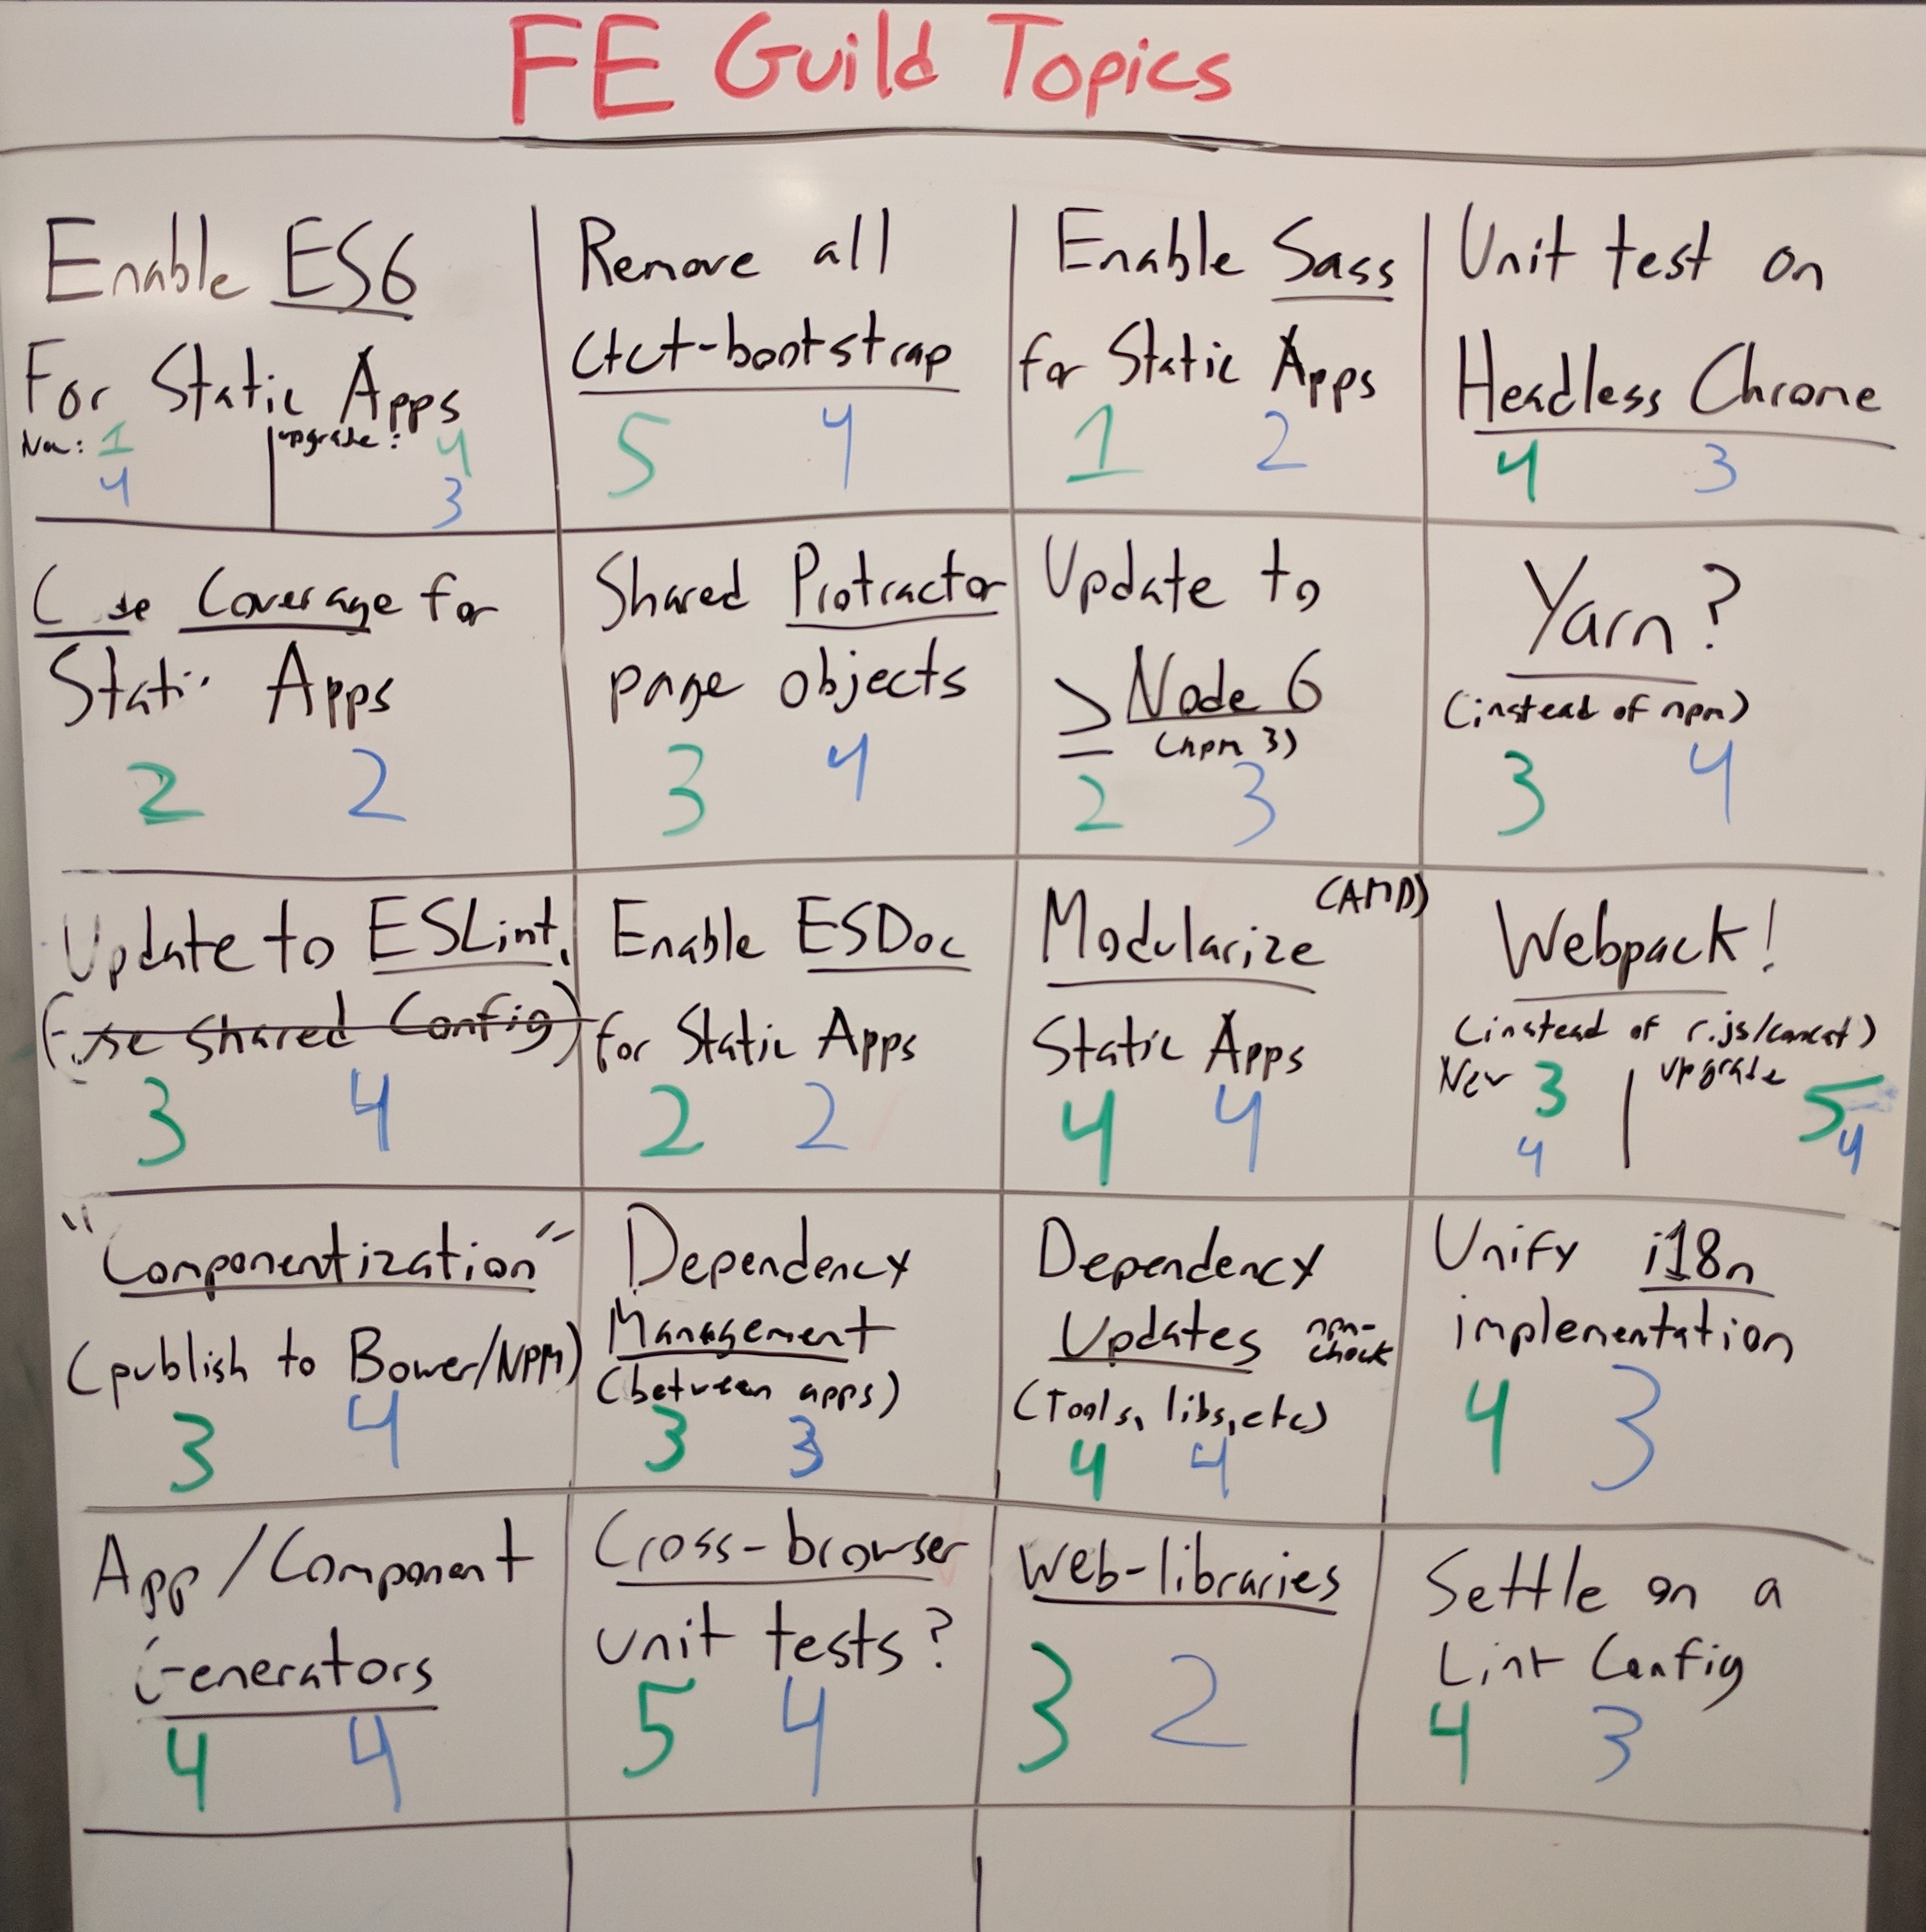 FE Guild Topics
Enable ES6
For Static Apps
New: 1
4
upgrade: 4
3
Remove all
ctct-bootstrap
5 4
Enable Sass
for Static Apps
1 2
Unit test on
Headless Chrome
4 3
Code Coverage for
Static Apps
2 2
Shared Protractor
page objects
3 4
Update to
≥ Node 6
(npm 3)
2 3
Yarn?
(instead of npm)
3 4
Update to ESLint.
(use Shared Config)
3 4
Enable ESDoc
for Static Apps
2 2
Modularize (AMD)
Static Apps
4 4
Webpack!
(instead of r.js/concat)
New 3
4
upgrade 5
4
"Componentization"
(publish to Bower/NPM)
3 4
Dependency
Management
(between apps)
3 3
Dependency
Updates npm-
check
(Tools, libs, etc)
4 4
Unify i18n
implementation
4 3
App/Component
Generators
4 4
Cross-browser
unit tests?
5 4
web-libraries
3 2
Settle on a
Lint Config
4 3